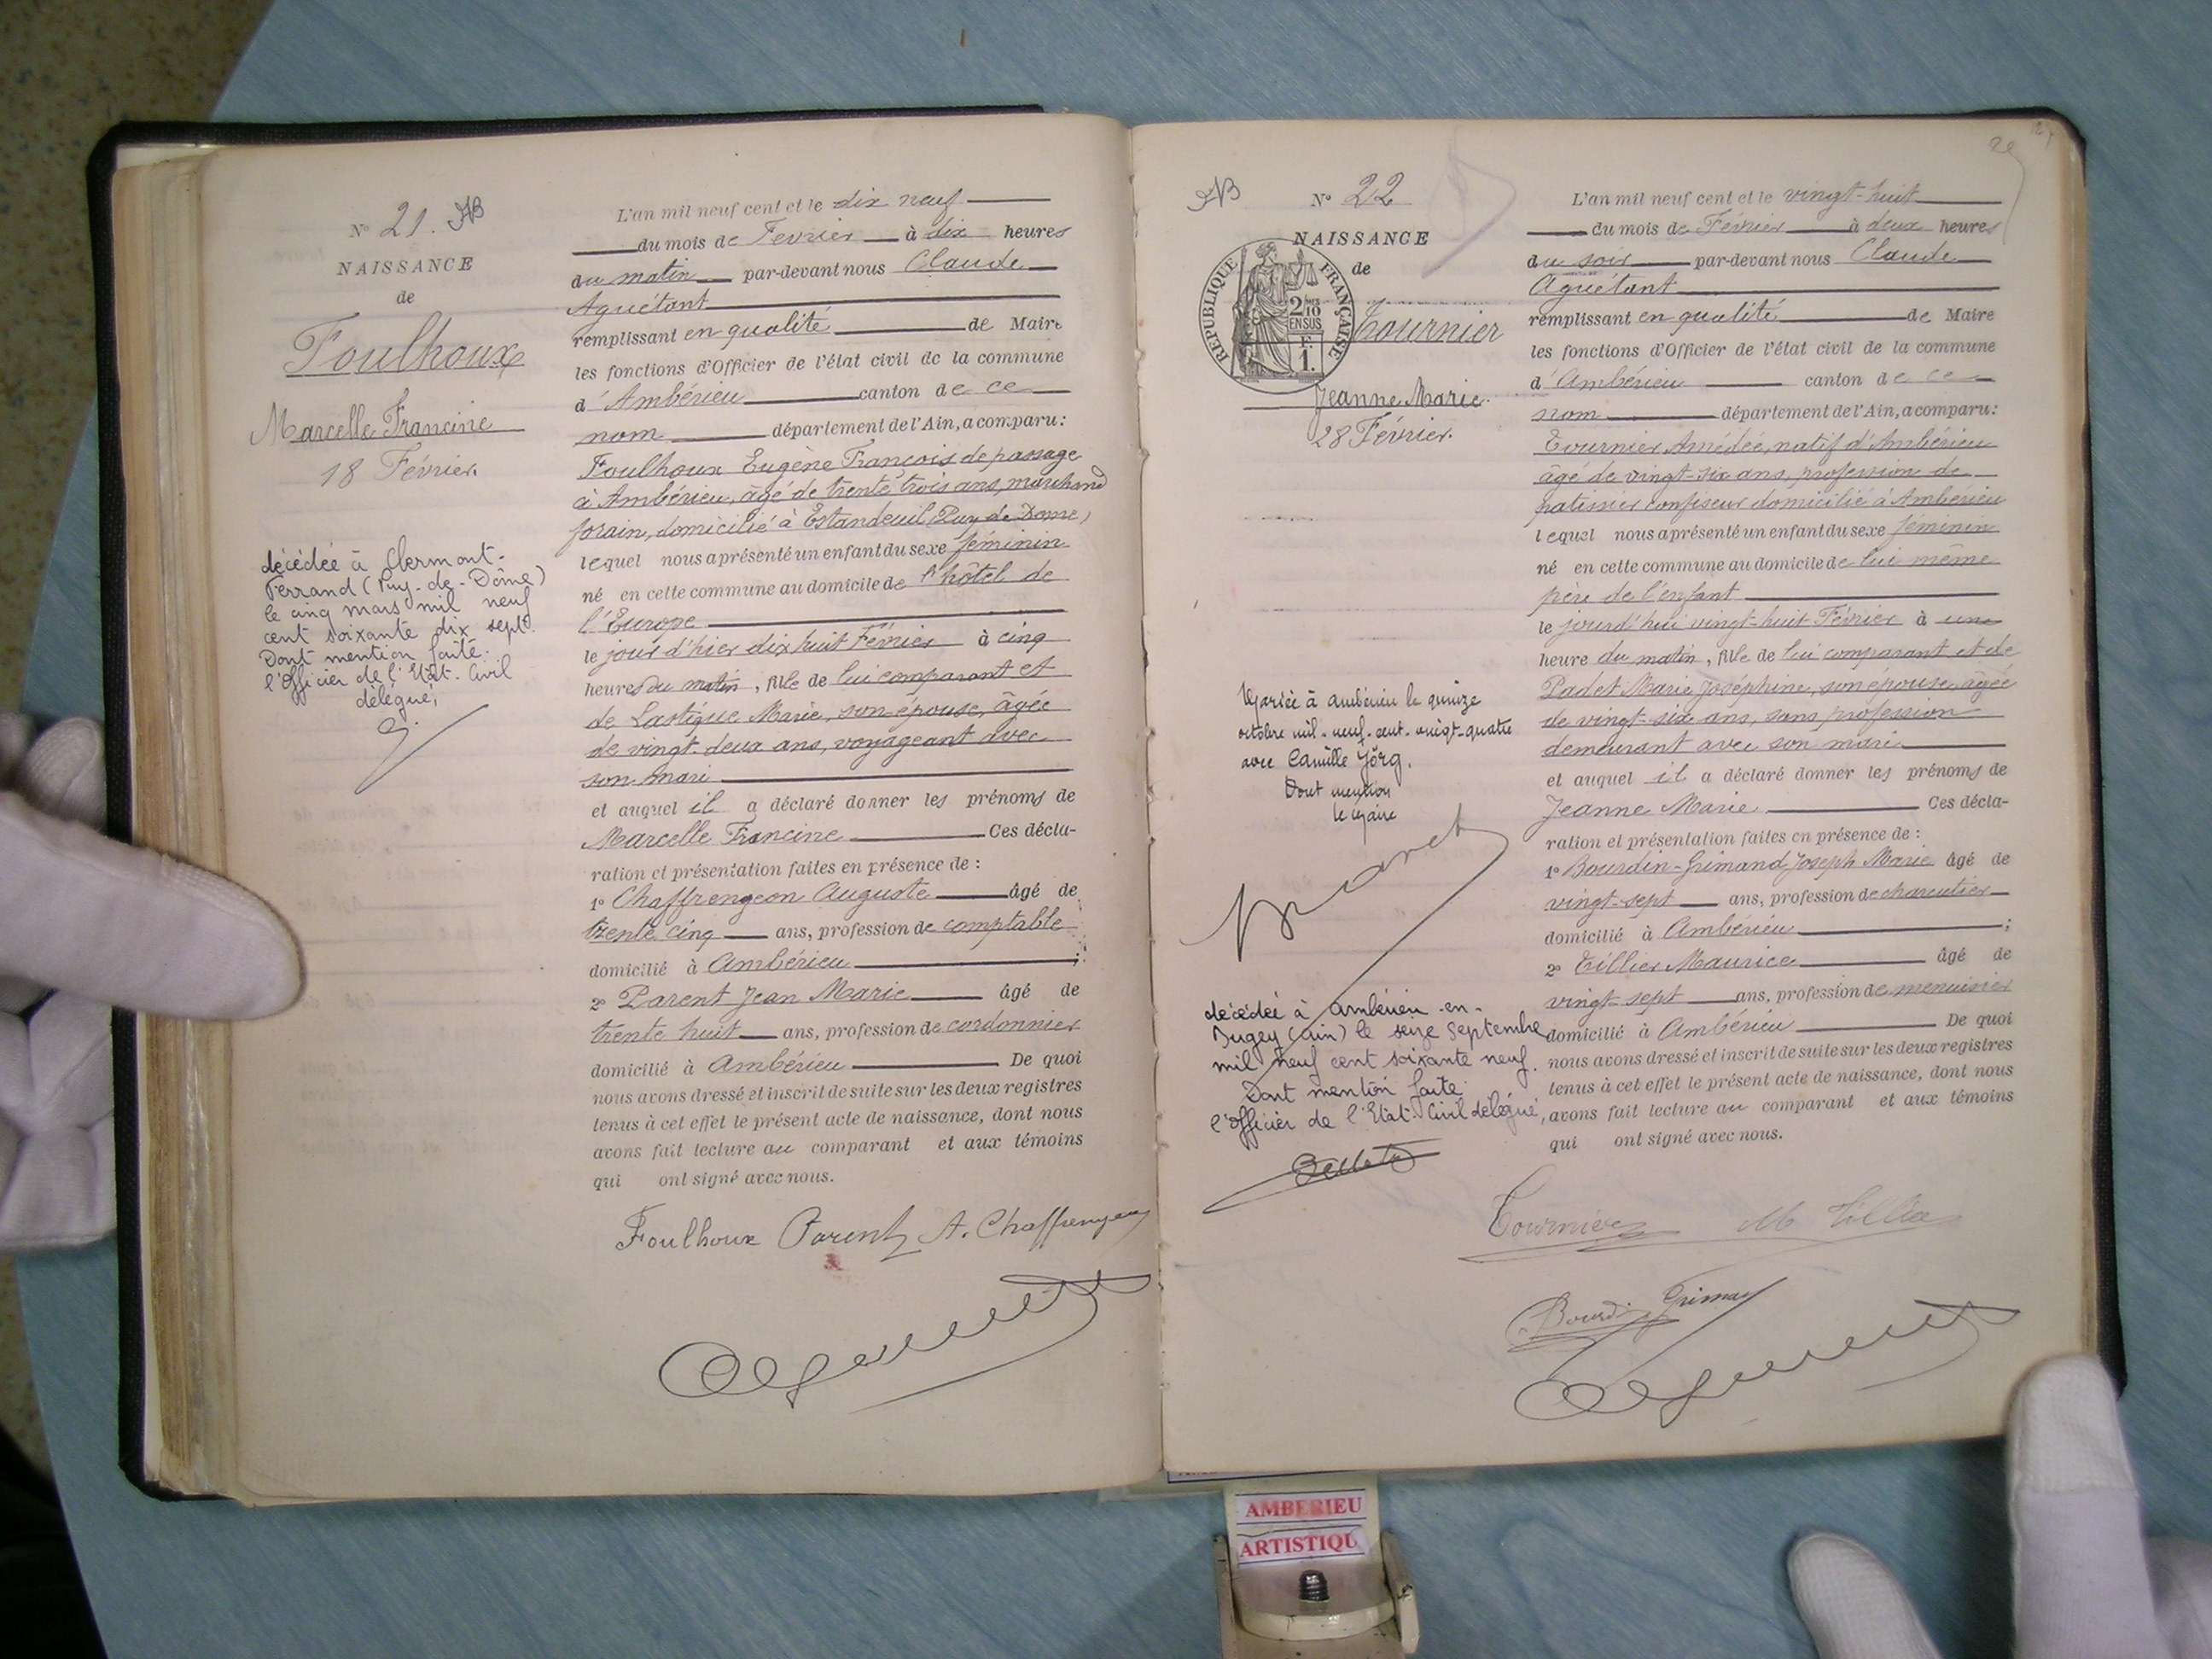 N° 21.
NAISSANCE
de
Foulhoux
Marcelle Francine
18 Février
décédée à Clermont-
Ferrand (Puy-de-Dôme)
le cinq mars mil neuf
cent soixante dix sept.
Dont mention faite.
l'Officier de l'Etat-Civil
délégué,
L'an mil neuf cent et le dix neuf
du mois de Fevrier à dix heures
du matin par-devant nous Claude
Aguétant
remplissant en qualité de Maire
les fonctions d'Officier de l'état civil de la commune
d'Ambérieu canton de ce
nom département de l'Ain, a comparu :
Foulhoux Eugène François de passage
à Ambérieu, âgé de trente trois ans, marchand
forain, domicilié à Estandeuil (Puy de Dome)
lequel nous a présenté un enfant du sexe féminin
né en cette commune au domicile de l'hôtel de
l'Europe
le jour d'hier dix huit Février à cinq
heures du matin, fille de lui comparant et
de Lastique Marie, son épouse, âgée
de vingt-deux ans, voyageant avec
son mari
et auquel il a déclaré donner les prénoms de
Marcelle Francine Ces décla-
ration et présentation faites en présence de :
1° Chaffrengeon Auguste âgé de
trente cinq ans, profession de comptable
domicilié à Ambérieu ;
2° Parent Jean Marie âgé de
trente huit ans, profession de cordonnier
domicilié à Ambérieu De quoi
nous avons dressé et inscrit de suite sur les deux registres
tenus à cet effet le présent acte de naissance, dont nous
avons fait lecture au comparant et aux témoins
qui ont signé avec nous.
Foulhoux Parent A. Chaffrengeon
Aguétant
N° 22
NAISSANCE
de
RÉPUBLIQUE FRANÇAISE
2/10
EN SUS
F.
1.
Tournier
Jeanne Marie.
28 Février.
Mariée à Ambérieu le quinze
octobre mil-neuf-cent-vingt-quatre
avec Camille Jörg.
Dont mention
le Maire
décédée à Ambérieu-en-
Bugey (Ain) le seize Septembre
mil neuf cent soixante neuf.
Dont mention faite.
l'Officier de l'Etat-Civil délégué,
L'an mil neuf cent et le vingt-huit
du mois de Février à deux heures
du soir par-devant nous Claude
Aguétant
remplissant en qualité de Maire
les fonctions d'Officier de l'état civil de la commune
d'Ambérieu canton de ce
nom département de l'Ain, a comparu :
Tournier Amédée, natif d'Ambérieu
âgé de vingt-six ans, profession de
patissier confiseur domicilié à Ambérieu
lequel nous a présenté un enfant du sexe féminin
né en cette commune au domicile de lui même
père de l'enfant
le jourd'hui vingt-huit Février à une
heure du matin, fille de lui comparant et de
Padet Marie Joséphine, son épouse, âgée
de vingt-six ans, sans profession
demeurant avec son mari
et auquel il a déclaré donner les prénoms de
Jeanne Marie Ces décla-
ration et présentation faites en présence de :
1° Bourdin-Grimand Joseph Marie âgé de
vingt-sept ans, profession de charcutier
domicilié à Ambérieu ;
2° Tillier Maurice âgé de
vingt-sept ans, profession de menuisier
domicilié à Ambérieu De quoi
nous avons dressé et inscrit de suite sur les deux registres
tenus à cet effet le présent acte de naissance, dont nous
avons fait lecture au comparant et aux témoins
qui ont signé avec nous.
Tournier M Tillier
Aguétant
AMBERIEU
ARTISTIQU